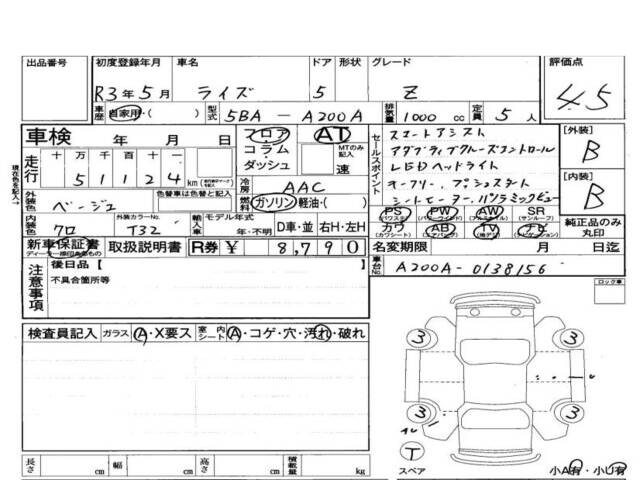 出品番号 初度登録年月 車名 ドア 形状 グレード 評価点
R3年5月 ライズ 5 Z 4.5
車歴 自家用・( ) 型式 5BA - A200A 排気量 1000 cc 定員 5 人
車検 年 月 日 フロア AT
コラム MTのみ記入
ダッシュ 速
走行 十 万 千 百 十 一
5 1 1 2 4 km
現在色を記入→
冷房 AAC
外装色 ベージュ 色替車は色替前の色 燃料 ガソリン・軽油・( )
内装色 クロ 外装カラーNo. T32 輸入車 モデル年式 年・不明 D車・並 右H・左H
新車保証書 取扱説明書 R券 ¥ 8,790
セールスポイント
スマートアシスト
アダプティブクルーズコントロール
LEDヘッドライト
オーフリー、プッシュスタート
シートヒーター、パノラミックビュー
PS PW AW SR
(パワステ) (パワーウインド) (アルミホイル) (サンルーフ)
カワ AB TV ナビ
(カワシート) (エアバッグ) (地デジ) (ナビゲーション)
[外装] B
[内装] B
純正品のみ丸印
名変期限 月 日迄
車台No. A200A-0138156
注意事項 後日品 [ ]
不具合箇所等
ロック車
検査員記入 ガラス A・X要ス 室内シート A・コゲ・穴・汚れ・破れ
3 3
3 3
T
スペア
小A有・小U有
長さ cm 幅 cm 高さ cm 積載量 kg